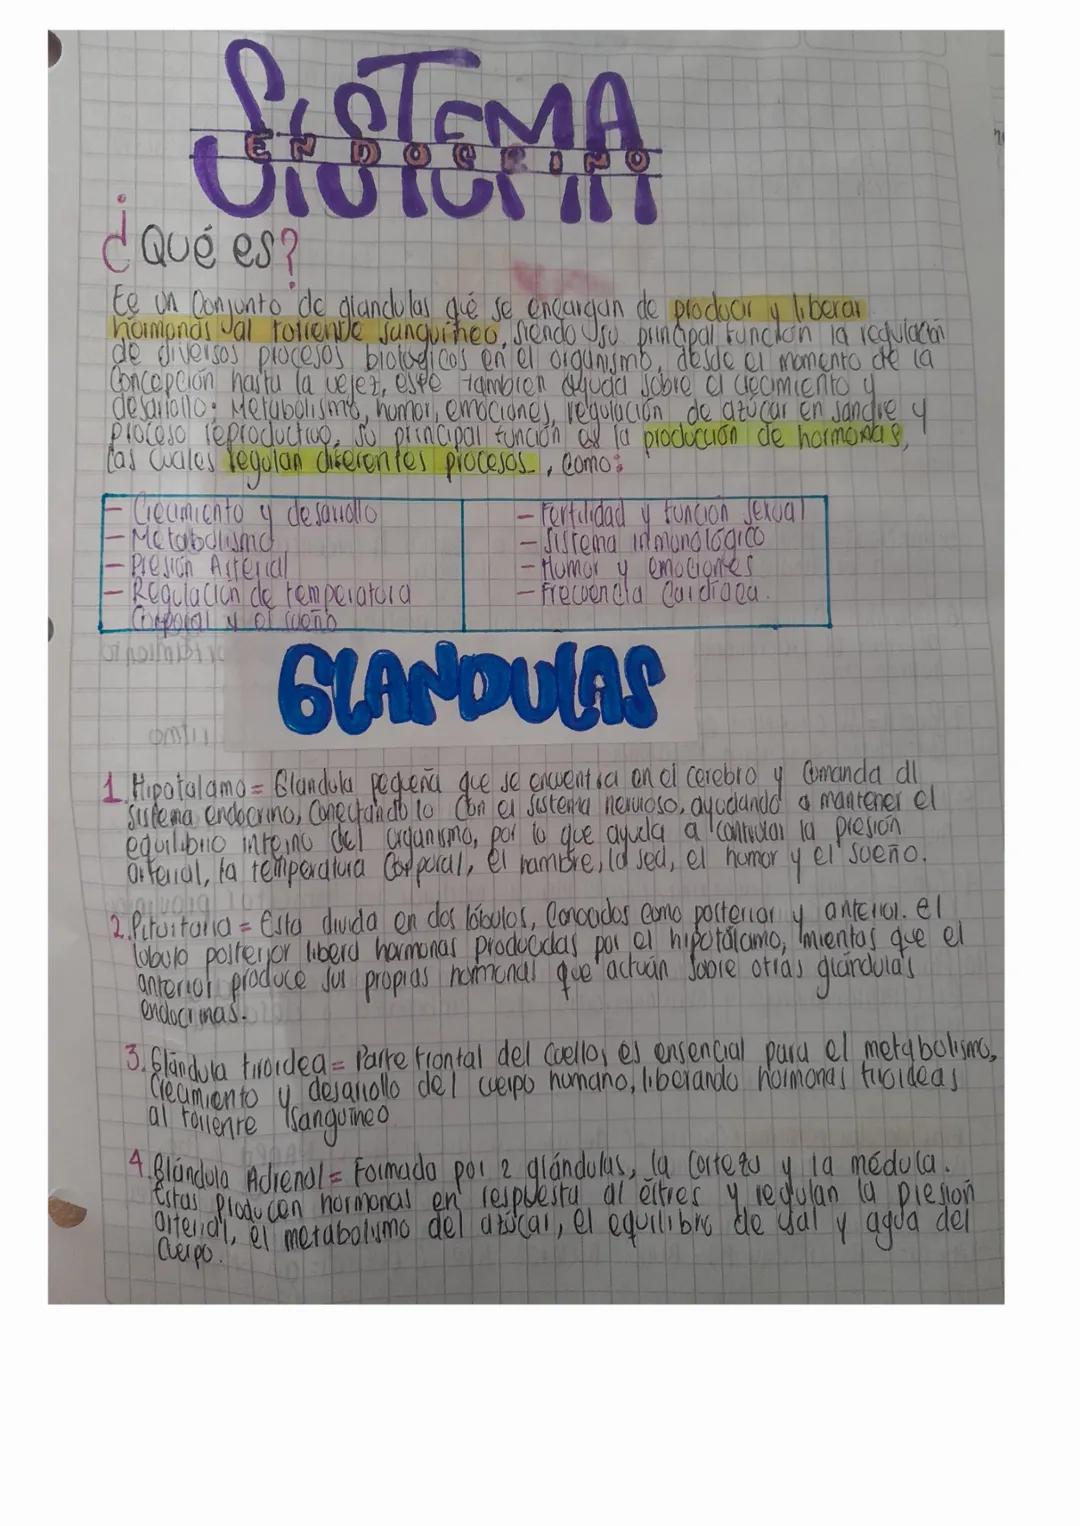 SISTEMA
ENDOCRINO
¿Qué es?
Es un Conjunto de glandulas qué se encargan de producir y liberar
hormonas al torrente sanguíneo, siendo su principal función la regulación
de diversos procesos biologicos en el organismo, desde el momento de la
Concepción hasta la vejez, este tambien ayuda sobre el crecimiento y
desarrollo. Metabolismo, humor, emociones, regulación de azúcar en sangre y
proceso reproductivo, su principal función es la producción de hormonas,
las cuales regulan diferentes procesos, como:
- Crecimiento y desarrollo
- Metabolismo
- Presión Arterial
- Regulación de temperatura
Corporal y el sueño
- Fertilidad y función sexual
- Sistema inmunológico
- Humor y emociones
- Frecuencia Cardiaca.
GLANDULAS
1. Hipotalamo = Glandula pequeña que se encuentra en el cerebro y Comanda al
sistema endocrino, Conectandolo Con el sistema nervioso, ayudando a mantener el
equilibrio interno del organismo, por lo que ayuda a controlar la presión
arterial, la temperatura Corporal, el hambre, la sed, el humor y el sueño.
2. Pituitaria = Esta divida en dos lóbulos, Conocidos como posterior y anterior. el
lobulo posterior libera hormonas producidas por el hipotálamo, mientas que el
anterior produce sus propias hormonas que actuán sobre otras glándulas
endocrinas.
3. Glándula tiroidea = Parte frontal del Cuello, es ensencial para el metabolismo,
Crecimiento y desarrollo del cuerpo humano, liberando hormonas tiroideas
al torrente sanguíneo
4. Glándula Adrenal = Formada por 2 glándulas, la Corteza y la médula.
Estas producen hormonas en respuesta al éstres y regulan la presion
arterial, el metabolismo del azúcar, el equilibro de sal y agua del
Cuerpo.